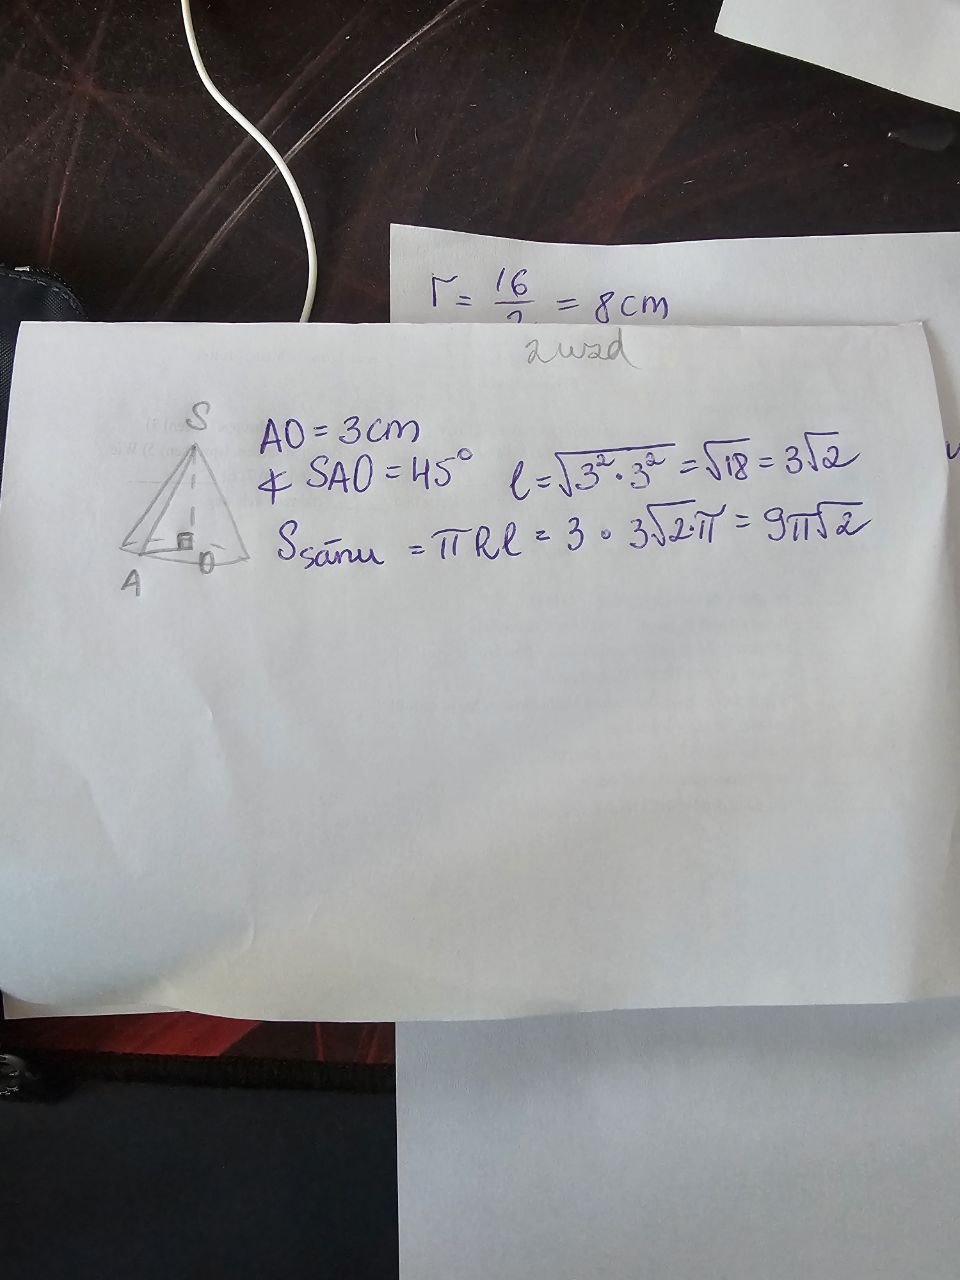 r = 16/2 = 8 cm
2 uzd
S
AO = 3 cm
∢ SAO = 45°
l = √3² · 3² = √18 = 3√2
Ssānu = πRl = 3 · 3√2 · π = 9π√2
A
O